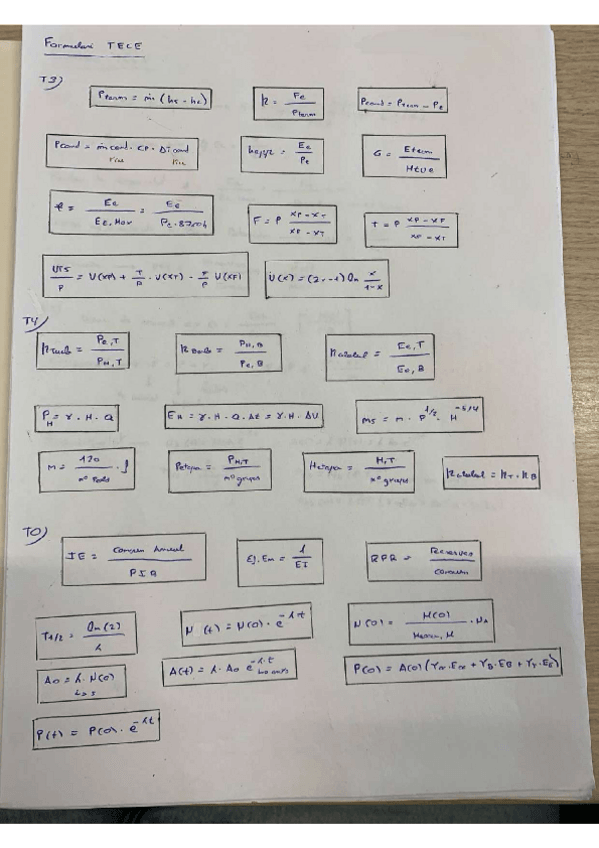 Formulari TECE
T3)
Pterm = ṁ (hs - he)
η = Pe / Pterm
Pcond = Pterm - Pe
Pcond = ṁ cond · CP · ΔT cond
riu riu
heqpc = Ee / Pe
G = Eterm / Htue
f = Ee / Ee, Max = Ee / Pe · 8760h
F = P (xP - xT) / (xF - xT)
T = P (xP - xF) / (xF - xT)
UTS / P = V(xP) + T/P · V(xT) - F/P V(xF)
V(x) = (2x - 1) ln x / (1-x)
T4)
ηTurb = Pe,T / PH,T
ηBomb = PH,B / Pe,B
ηglobal = Ee,T / Ee,B
PH = γ · H · Q
EH = γ · H · Q · Δt = γ · H · ΔV
ms = n · P^1/2 · H^-5/4
n = 120 / nº Pols · f
Petapa = PH,T / nº grups
Hetapa = H,T / nº grups
ηglobal = ηT · ηB
T0)
IE = Consum Anual / PIB
Ef. En = 1 / EI
RPR = Reserves / Consum
T1/2 = ln(2) / λ
N(t) = N(0) · e^-λ·t
N(0) = M(0) / Mattom, M · NA
A0 = λ · N(0)
A(t) = λ · A0 e^-λ·t
P(0) = A(0) (Yα · Eα + YB · EB + Yγ · Eγ)
P(t) = P(0) · e^-λt